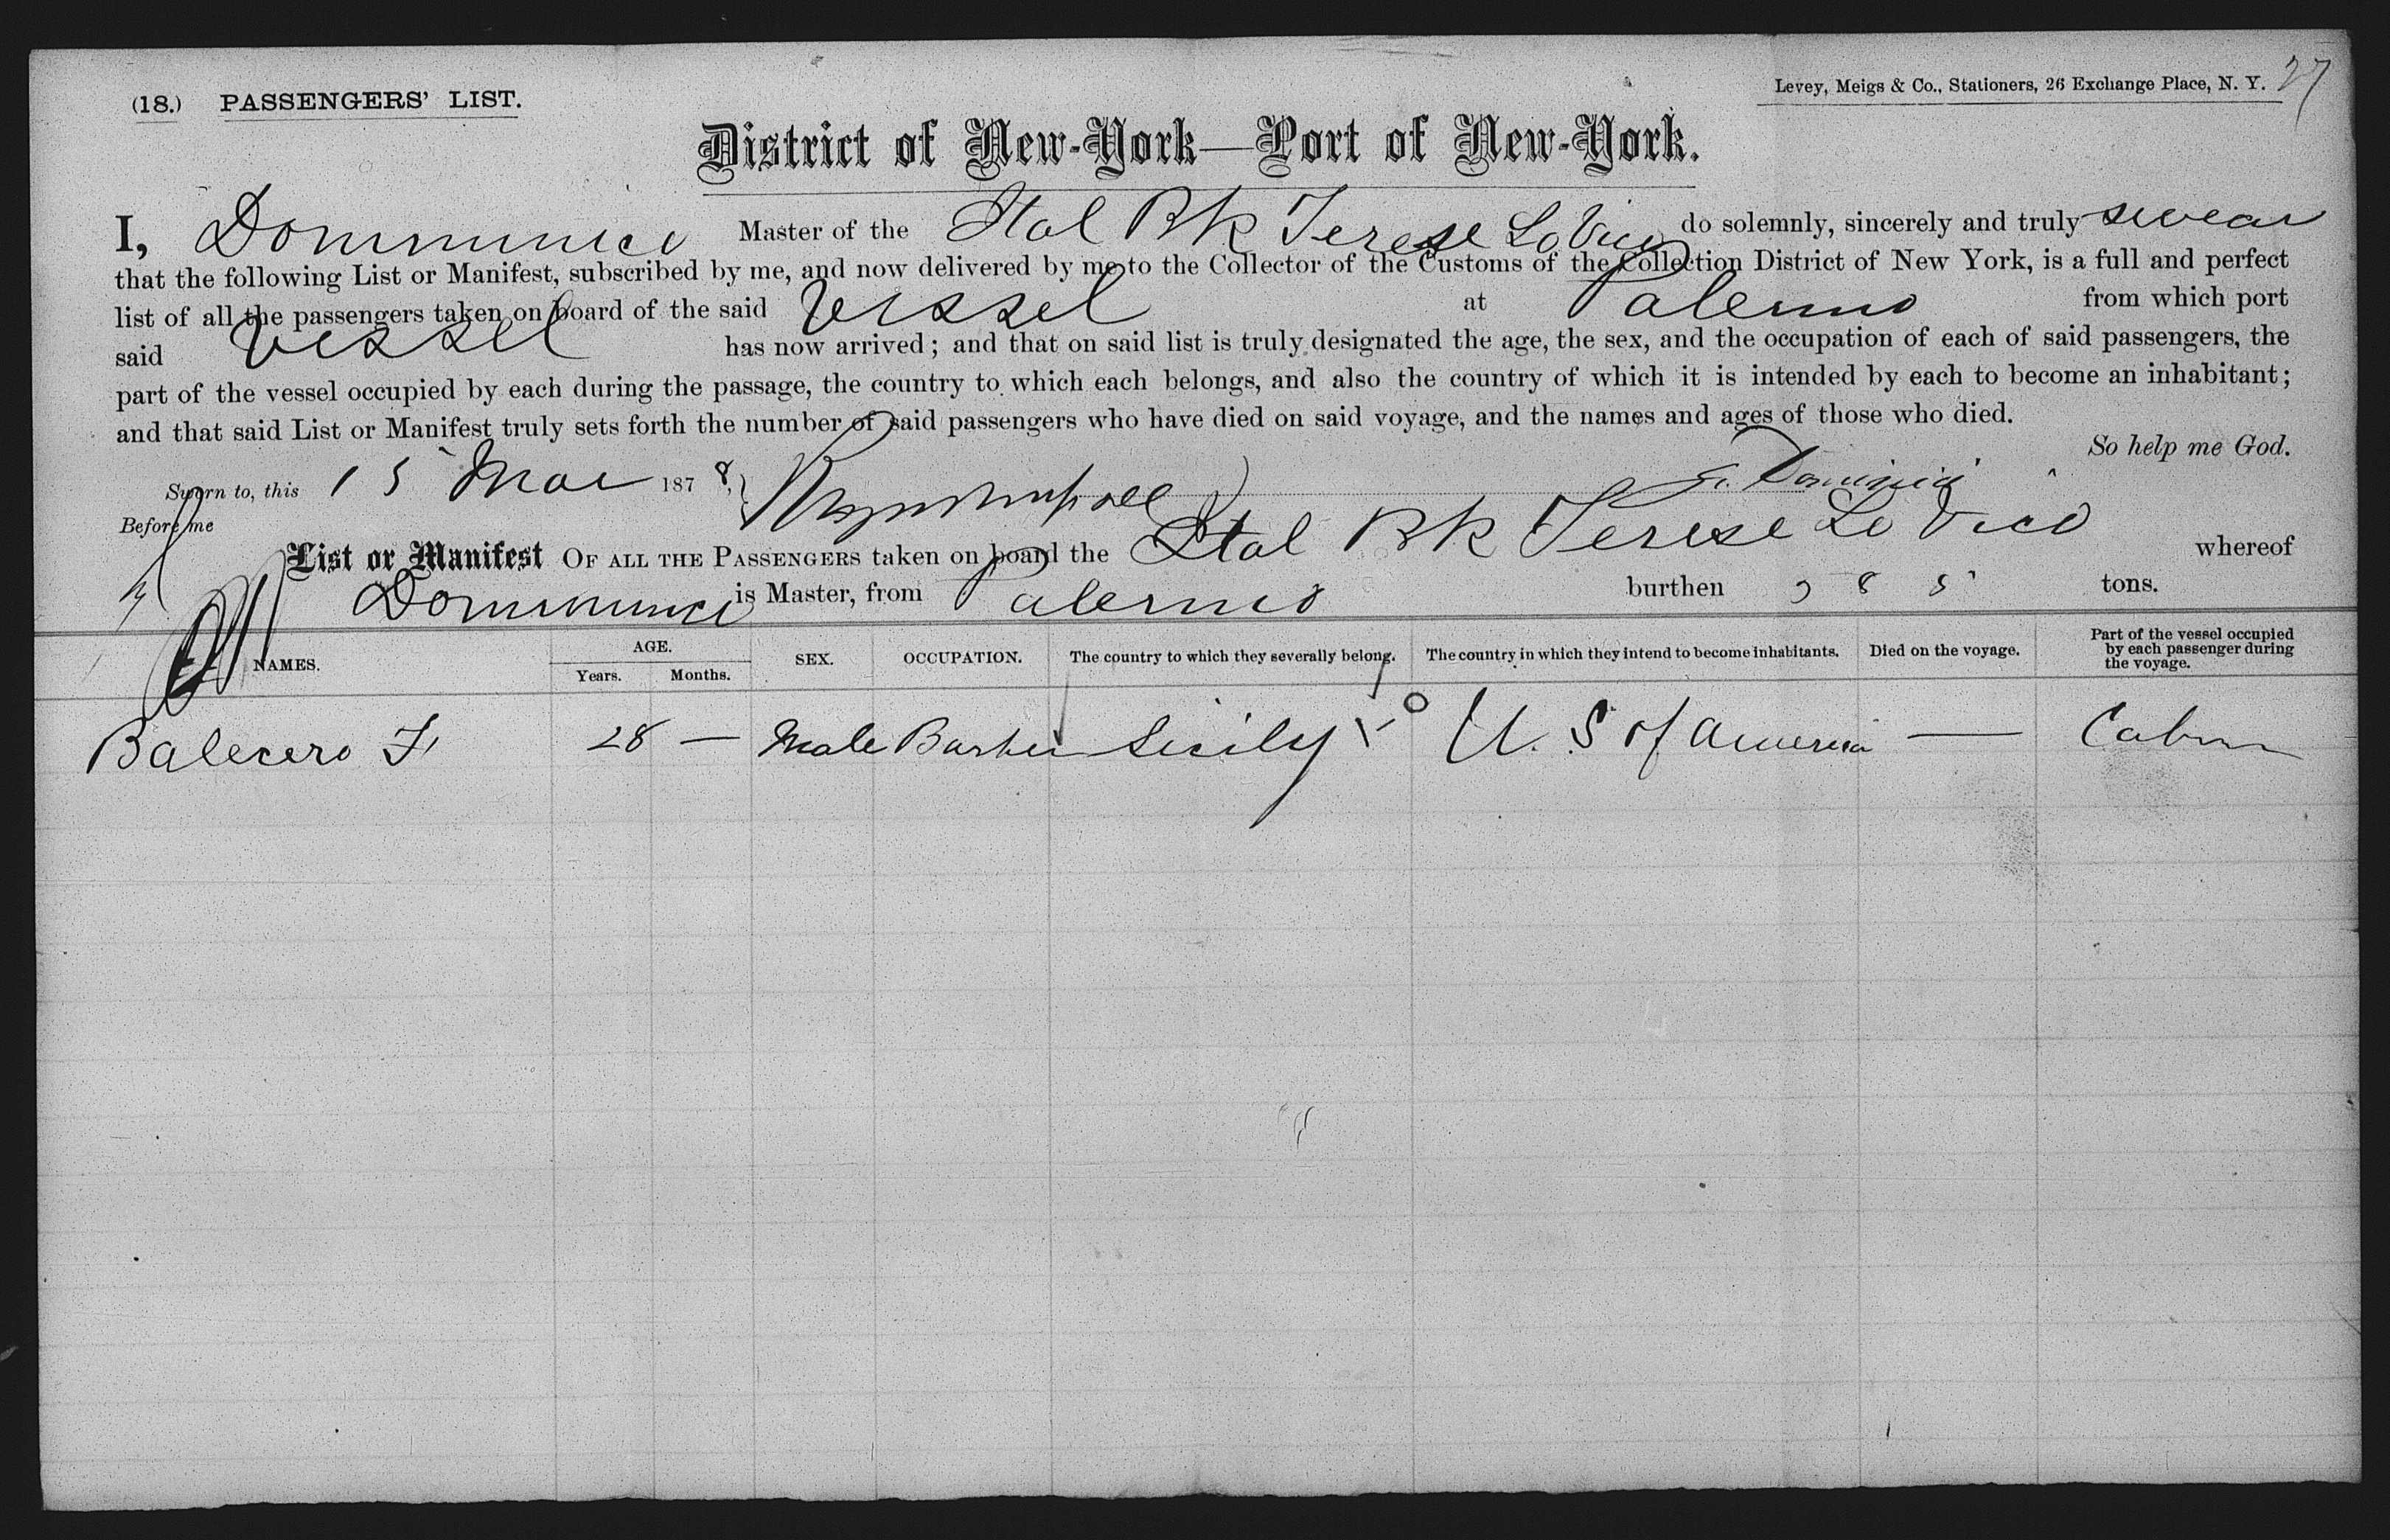 (18.) PASSENGERS' LIST.
Levey, Meigs & Co., Stationers, 26 Exchange Place, N. Y. 27
District of New-York—Port of New-York.
I, Domminici Master of the Ital Bk Terese Lo Vico do solemnly, sincerely and truly swear
that the following List or Manifest, subscribed by me, and now delivered by me to the Collector of the Customs of the Collection District of New York, is a full and perfect
list of all the passengers taken on board of the said Vessel at Palermo from which port
said Vessel has now arrived; and that on said list is truly designated the age, the sex, and the occupation of each of said passengers, the
part of the vessel occupied by each during the passage, the country to which each belongs, and also the country of which it is intended by each to become an inhabitant;
and that said List or Manifest truly sets forth the number of said passengers who have died on said voyage, and the names and ages of those who died.
So help me God.
Sworn to, this 15 Mar 1878,
Before me
List or Manifest OF ALL THE PASSENGERS taken on board the Ital Bk Terese Lo Vico whereof
Domminici is Master, from Palermo burthen 385 tons.
NAMES. AGE. Years. Months. SEX. OCCUPATION. The country to which they severally belong. The country in which they intend to become inhabitants. Died on the voyage. Part of the vessel occupied by each passenger during the voyage.
Balecero F. 28 — Male Barber Sicily U. S of America — Cabin